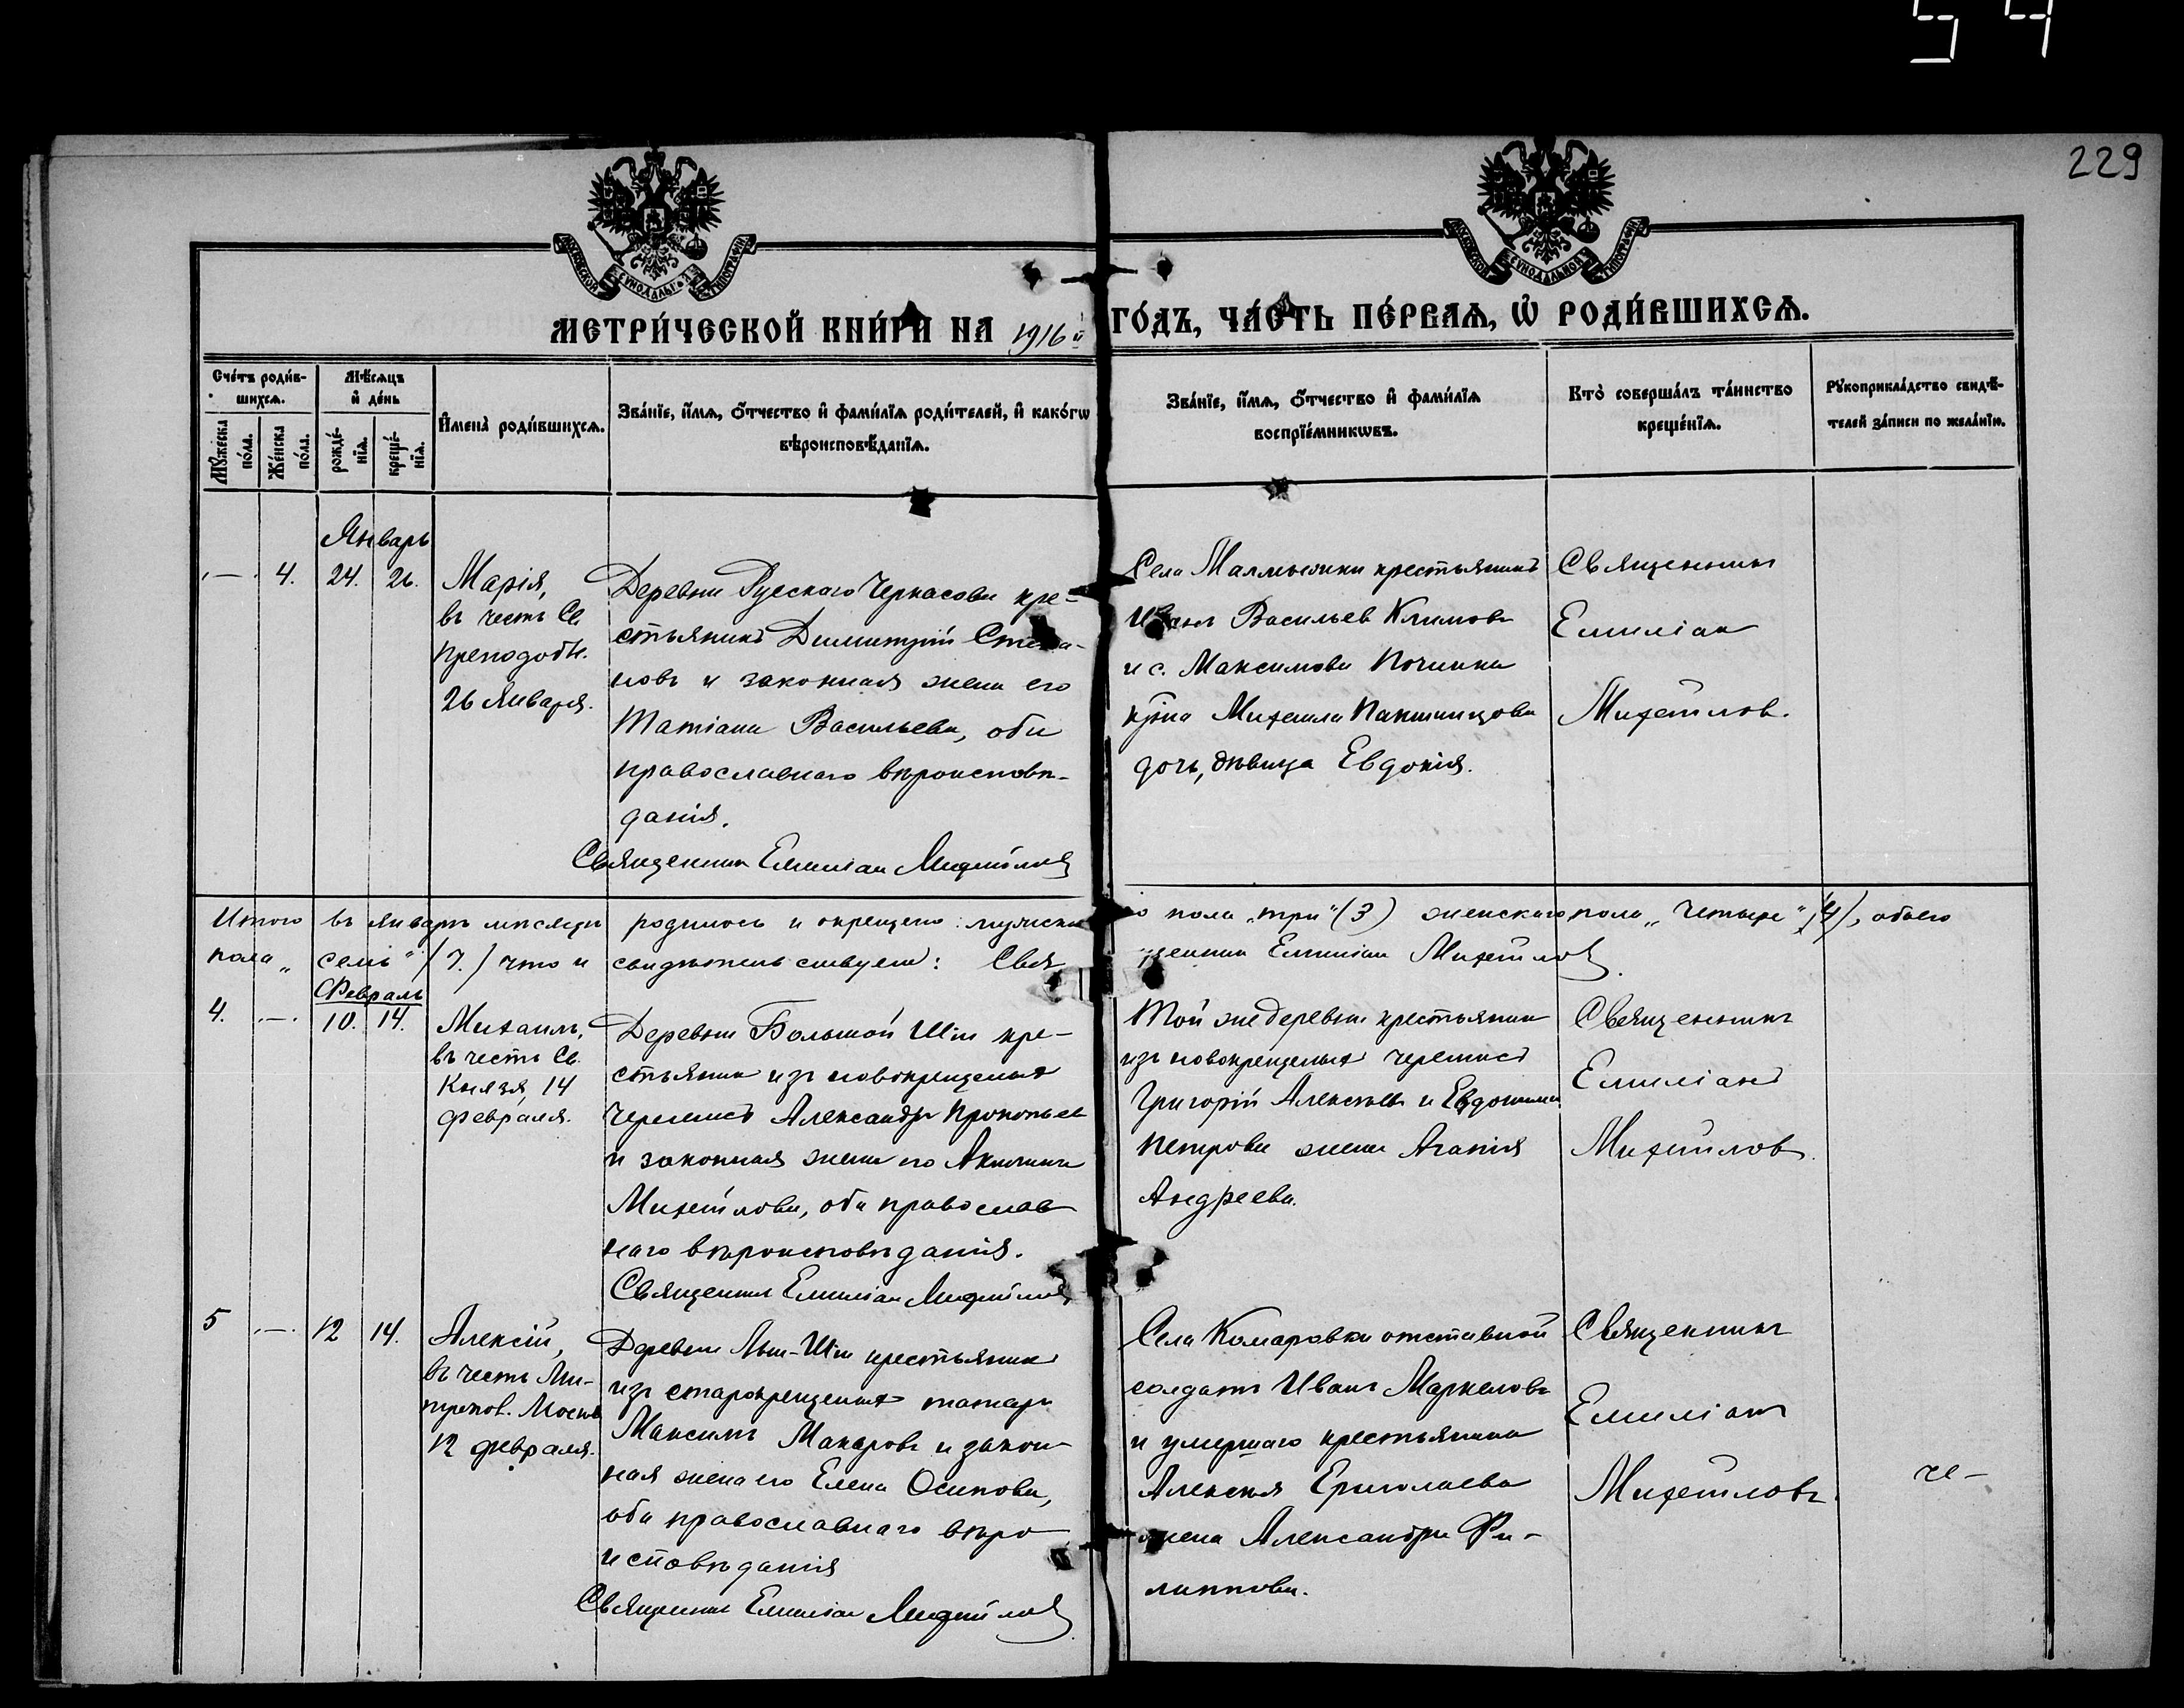 54
229
МЕТРИ́ЧЕСКОЙ КНИ́ГИ НА 1916й ГО́ДЪ, ЧА́СТЬ ПЕ́РВАѦ, Ѡ҆ РОДИ́ВШИХСѦ.
Сче́тъ роди́в-
шихсѧ.
Мѣ́сѧцъ
и҆ де́нь
Мꙋ́жеска по́ла.
Же́нска по́ла.
рожде́-
нїѧ.
креще́-
нїѧ.
И҆мена̀ роди́вшихсѧ.
Зва́нїе, и҆́мѧ, ѻ҆́тчество и҆ фами́лїѧ роди́телей, и҆ како́гѡ
вѣроисповѣ́данїѧ.
Зва́нїе, и҆́мѧ, ѻ҆́тчество и҆ фами́лїѧ
воспрїе́мникѡвъ.
Кто̀ соверша́лъ та́инство
креще́нїѧ.
Рꙋкоприкла́дство свидѣ́-
телей за́писи по жела́нїю.
Январь
— 4. 24. 26.
Марія,
въ честь Св.
преподобн.
26 Января.
Деревни Русскаго Черкасова кре-
стьянинъ Димитрій Степа-
новъ и законная жена его
Татіана Васильева, оба
православнаго вѣроисповѣ-
данія.
Священникъ Емиліан Михайлов
Села Малмыжки крестьянинъ
Васильев Климовъ
и с. Максимова Починка
кр-на Михаила
дочь, дѣвица Евдокія.
Священникъ
Емиліан
Михайлов.
Итого въ январѣ мѣсяцѣ родилось и окрещено: мужскаго пола „три" (3) женскаго пола „четыре" (4), обоего
пола „семь" (7.) что и свидѣтельствуем: Священник Емиліан Михайлов.
Февраль
4. — 10. 14.
Михаилъ,
въ честь Св.
Князя, 14
февраля.
Деревни Большой Ши кре-
стьянин изъ новокрещеных
черемисъ Александръ Прокопьев
и законная жена его Акилина
Михайлова, оба православ
наго вѣроисповѣданія.
Священник Емиліан Михайлов
Той же деревни крестьянин
изъ новокрещеных черемисъ
Григорій Алексѣевъ и Евдокима
Петрова жена Агапія
Андреева.
Священникъ
Емиліанъ
Михайлов.
5 — 12 14.
Алексій,
въ честь Ми-
тропол. Москв.
12 февраля.
Деревни Ши крестьянинъ
изъ старокрещеных татаръ
Максимъ Макаровъ и закон-
ная жена его Елена Осипова,
оба православнаго вѣро
исповѣданія
Священник Емиліан Михайлов
Села Комаровки отставной
солдатъ Иванъ Маркеловъ
и умершаго крестьянина
Алексѣя Ермолаева
жена Александра Фи-
липпова.
Священникъ
Емиліан
Михайловъ.
че-